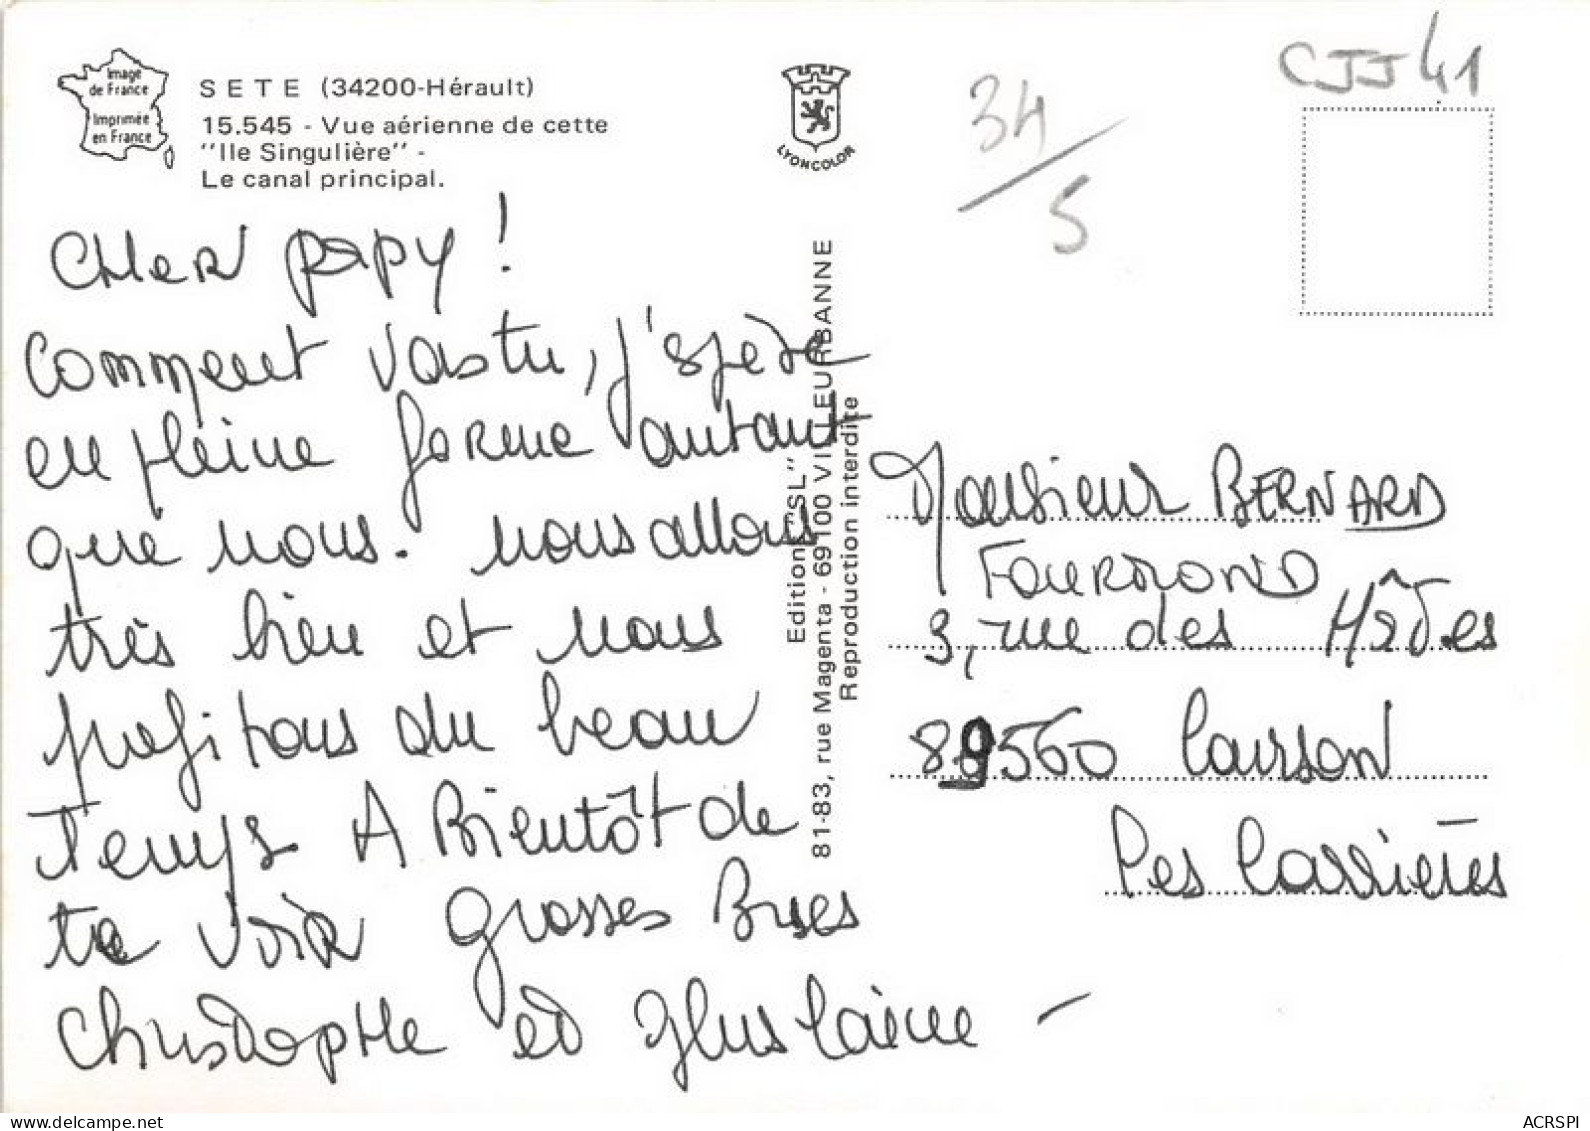 Image
de France
Imprimée
en France
SETE (34200-Hérault)
15.545 - Vue aérienne de cette
"Ile Singulière" -
Le canal principal.
LYONCOLOR
34/5
CJJ41
CHeR papy !
Comment vastu, j'espère
en pleine forme autant
que nous. nous allons
très bien et nous
profitons du beau
temps A Bientôt de
te voir grosses Bises
Christophe et Ghuslaine -
Editions "SL"
81-83, rue Magenta - 69100 VILLEURBANNE
Reproduction interdite
Monsieur BERNARD
3, rue des
89560 Courson
les Carrières
www.delcampe.net
ACRSPI